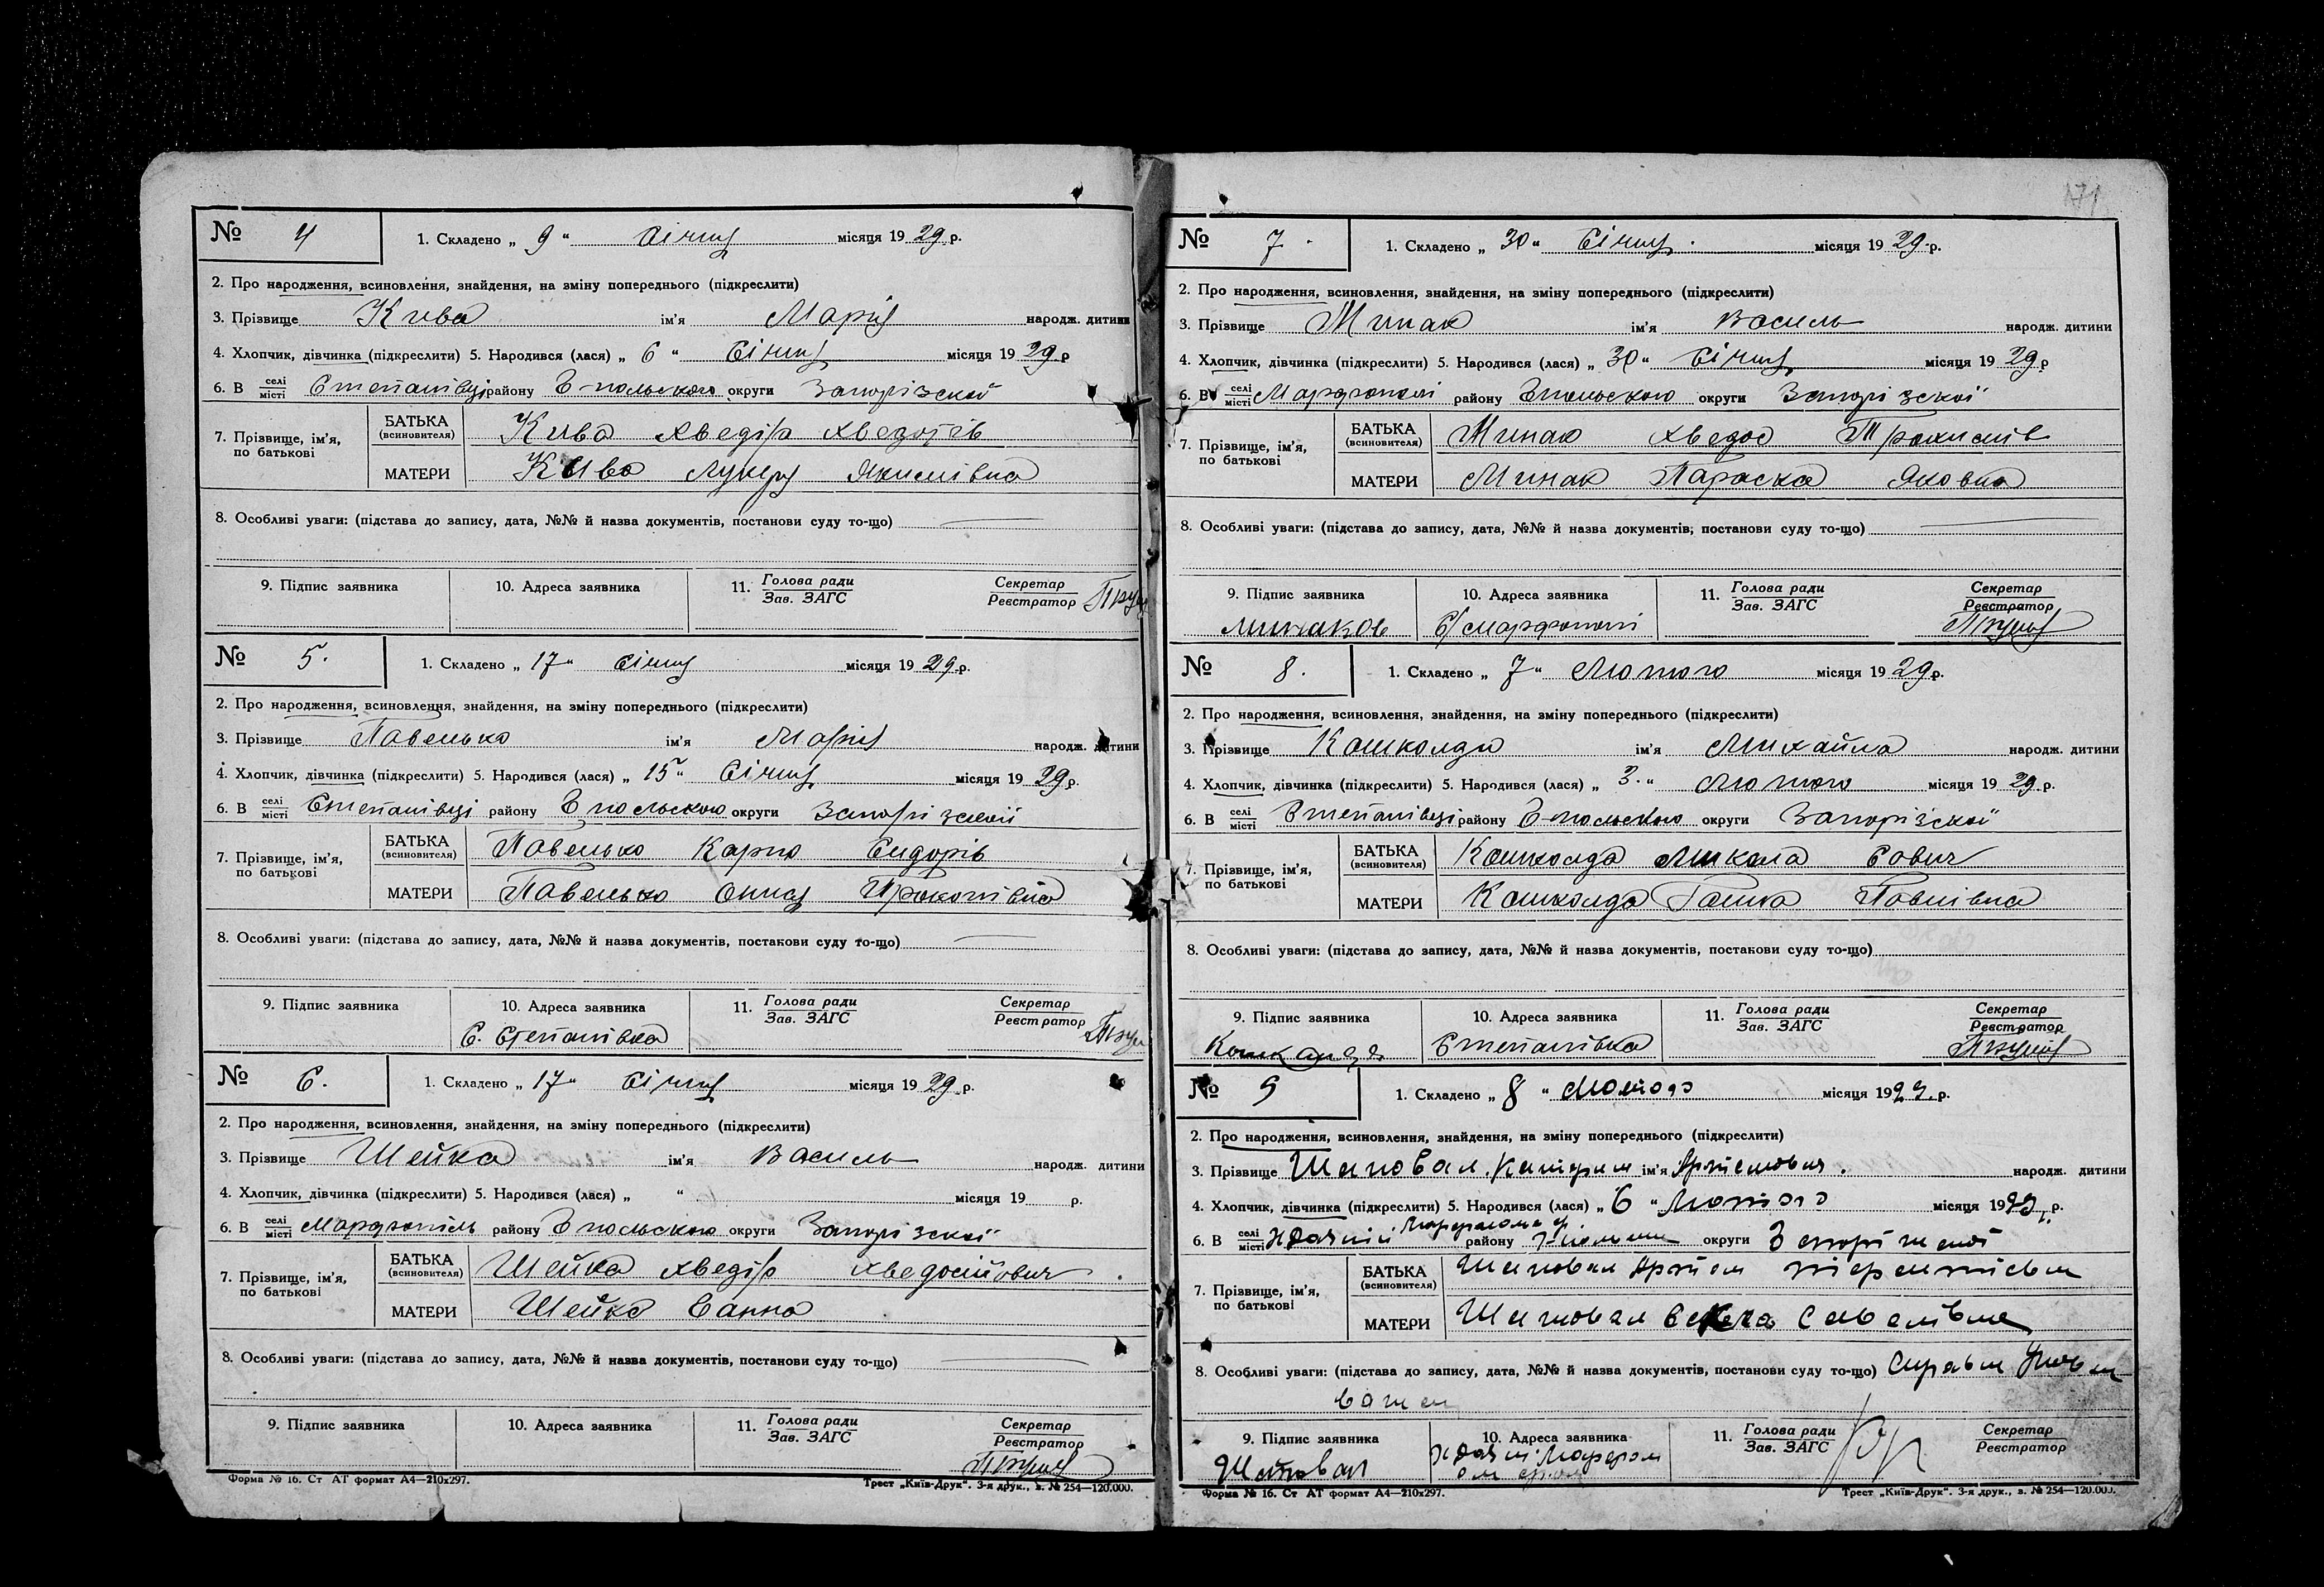 № 4
1. Складено „ 9 “ Січня місяця 19 29 р.
2. Про народження, всиновлення, знайдення, на зміну попереднього (підкреслити)
3. Прізвище Кива ім'я Марія народж. дитини
4. Хлопчик, дівчинка (підкреслити) 5. Народився (лася) „ 6 “ Січня місяця 19 29 р
6. В селі місті Степанівці району Т-польського округи Запорізской
7. Прізвище, ім'я, по батькові
БАТЬКА (всиновителя) Кива Хведір
МАТЕРИ Кива Лукеря Якимівна
8. Особливі уваги: (підстава до запису, дата, №№ й назва документів, постанови суду то-що)
9. Підпис заявника 10. Адреса заявника 11. Голова ради Зав. ЗАГС Секретар Реєстратор
№ 5.
1. Складено „ 17 “ Січня місяця 19 29 р.
2. Про народження, всиновлення, знайдення, на зміну попереднього (підкреслити)
3. Прізвище Павелько ім'я Марія народж. дитини
4. Хлопчик, дівчинка (підкреслити) 5. Народився (лася) „ 15 “ Січня місяця 19 29 р.
6. В селі місті Степанівці району Т-польського округи Запорізской
7. Прізвище, ім'я, по батькові
БАТЬКА (всиновителя) Павелько Карпо Сидорів
МАТЕРИ Павелько Прокопівна
8. Особливі уваги: (підстава до запису, дата, №№ й назва документів, постакови суду то-що)
9. Підпис заявника 10. Адреса заявника 11. Голова ради Зав. ЗАГС Секретар Реєстратор
С. Степанівка
№ 6.
1. Складено „ 17 “ Січня місяця 19 29 р.
2. Про народження, всиновлення, знайдення, на зміну попереднього (підкреслити)
3. Прізвище Шейка ім'я Василь народж. дитини
4. Хлопчик, дівчинка (підкреслити) 5. Народився (лася) „ “ місяця 19 р.
6. В селі місті Марфопіль району Т-польського округи Запорізской
7. Прізвище, ім'я, по батькові
БАТЬКА (всиновителя) Шейка Хведір Хведосійович
МАТЕРИ Шейка Ганна
8. Особливі уваги: (підстава до запису, дата, №№ й назва документів, постанови суду то-що)
9. Підпис заявника 10. Адреса заявника 11. Голова ради Зав. ЗАГС Секретар Реєстратор
Форма № 16. Ст АТ формат А4—210х297. Трест „Київ-Друк“. 3-я друк., з. № 254—120.000.
171
№ 7.
1. Складено „ 30 “ Січня місяця 19 29 р.
2. Про народження, всиновлення, знайдення, на зміну попереднього (підкреслити)
3. Прізвище Минак ім'я Василь народж. дитини
4. Хлопчик, дівчинка (підкреслити) 5. Народився (лася) „ 30 “ Січня місяця 19 29 р
6. В селі місті Марфополі району Т-польського округи Запорізскої
7. Прізвище, ім'я, по батькові
БАТЬКА (всиновителя) Минак Хведос Трохимів
МАТЕРИ Минак Параска Яковна
8. Особливі уваги: (підстава до запису, дата, №№ й назва документів, постанови суду то-що)
9. Підпис заявника 10. Адреса заявника 11. Голова ради Зав. ЗАГС Секретар Реєстратор
Минаков С/Марфополі
№ 8.
1. Складено „ 7 “ Лютого місяця 19 29 р.
2. Про народження, всиновлення, знайдення, на зміну попереднього (підкреслити)
3. Прізвище Кошколда ім'я Михайла народж. дитини
4. Хлопчик, дівчинка (підкреслити) 5. Народився (лася) „ 3. “ Лютого місяця 19 29 р.
6. В селі місті Степанівці району Т-польського округи Запорізской
7. Прізвище, ім'я, по батькові
БАТЬКА (всиновителя) Кошколда Микола Савич
МАТЕРИ Кошколда Гашка Павлівна
8. Особливі уваги: (підстава до запису, дата, №№ й назва документів, постакови суду то-що)
9. Підпис заявника 10. Адреса заявника 11. Голова ради Зав. ЗАГС Секретар Реєстратор
Степанівка
№ 9
1. Складено „ 8 “ Лютого місяця 19 29 р.
2. Про народження, всиновлення, знайдення, на зміну попереднього (підкреслити)
3. Прізвище Шаповал ім'я народж. дитини
4. Хлопчик, дівчинка (підкреслити) 5. Народився (лася) „ 6 “ Лютого місяця 19 29 р.
6. В селі місті району округи
7. Прізвище, ім'я, по батькові
БАТЬКА (всиновителя) Шаповал Артем
МАТЕРИ Шаповал Савелівна
8. Особливі уваги: (підстава до запису, дата, №№ й назва документів, постанови суду то-що)
9. Підпис заявника 10. Адреса заявника 11. Голова ради Зав. ЗАГС Секретар Реєстратор
Шаповал
Форма № 16. Ст АТ формат А4—210х297. Трест „Київ-Друк“. 3-я друк., з. № 254—120.000.